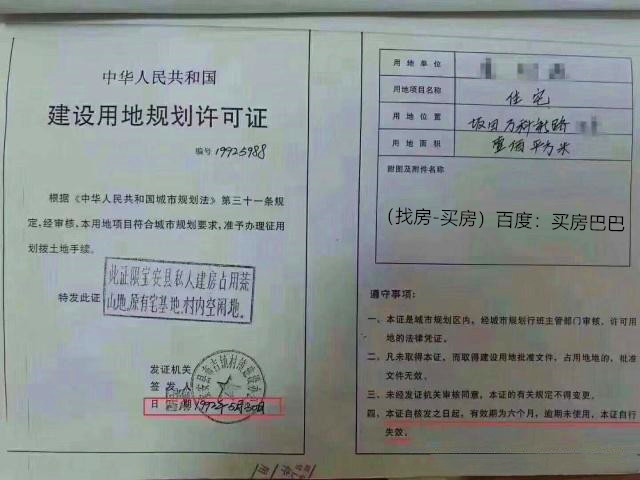 中华人民共和国
建设用地规划许可证
编号 19925988
根据《中华人民共和国城市规划法》第三十一条规
定,经审核,本用地项目符合城市规划要求,准予办理征用
划拨土地手续。
特发此证
此证限宝安县私人建房占用荒
山地,原有宅基地,村内空闲地。
发证机关
签发人
日期 1992年5月30日
用地单位
用地项目名称 住宅
用地位置 坂田万科新路
用地面积 壹佰平方米
附图及附件名称
(找房-买房)百度:买房巴巴
遵守事项:
一、本证是城市规划区内,经城市规划行班主管部门审核,许可用
地的法律凭证。
二、凡未取得本证,而取得建设用地批准文件,占用地地的,批准
文件无效。
三、未经发证机关审核同意,本证的有关规定不得变更。
四、本证自核发之日起,有效期为六个月,逾期未使用,本证自行
失效。